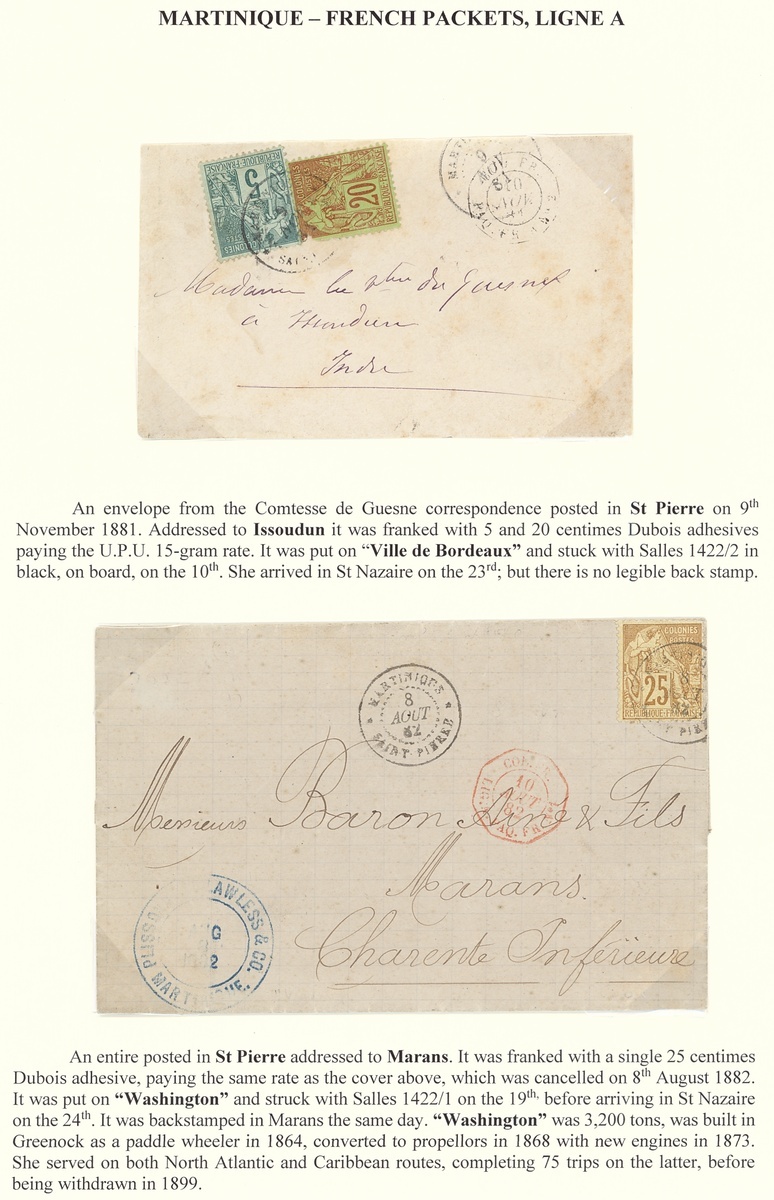 MARTINIQUE – FRENCH PACKETS, LIGNE A
5
COLONIES
POSTES
REPUBLIQUE FRANÇAISE
20
REPUBLIQUE FRANÇAISE
9
NOV
81
10
PAQ. FR.
Madame la
à Issoudun
Indre
An envelope from the Comtesse de Guesne correspondence posted in St Pierre on 9th
November 1881. Addressed to Issoudun it was franked with 5 and 20 centimes Dubois adhesives
paying the U.P.U. 15-gram rate. It was put on “Ville de Bordeaux” and stuck with Salles 1422/2 in
black, on board, on the 10th. She arrived in St Nazaire on the 23rd; but there is no legible back stamp.
COLONIES
POSTES
25
REPUBLIQUE FRANÇAISE
MARTINIQUE
8
AOUT
82
SAINT-PIERRE
COL.
10
82
PAQ. FR.
Messieurs Baron Ainé & Fils
Marans.
Charente Inférieure
LAWLESS & CO.
MARTINIQUE.
An entire posted in St Pierre addressed to Marans. It was franked with a single 25 centimes
Dubois adhesive, paying the same rate as the cover above, which was cancelled on 8th August 1882.
It was put on “Washington” and struck with Salles 1422/1 on the 19th, before arriving in St Nazaire
on the 24th. It was backstamped in Marans the same day. “Washington” was 3,200 tons, was built in
Greenock as a paddle wheeler in 1864, converted to propellors in 1868 with new engines in 1873.
She served on both North Atlantic and Caribbean routes, completing 75 trips on the latter, before
being withdrawn in 1899.